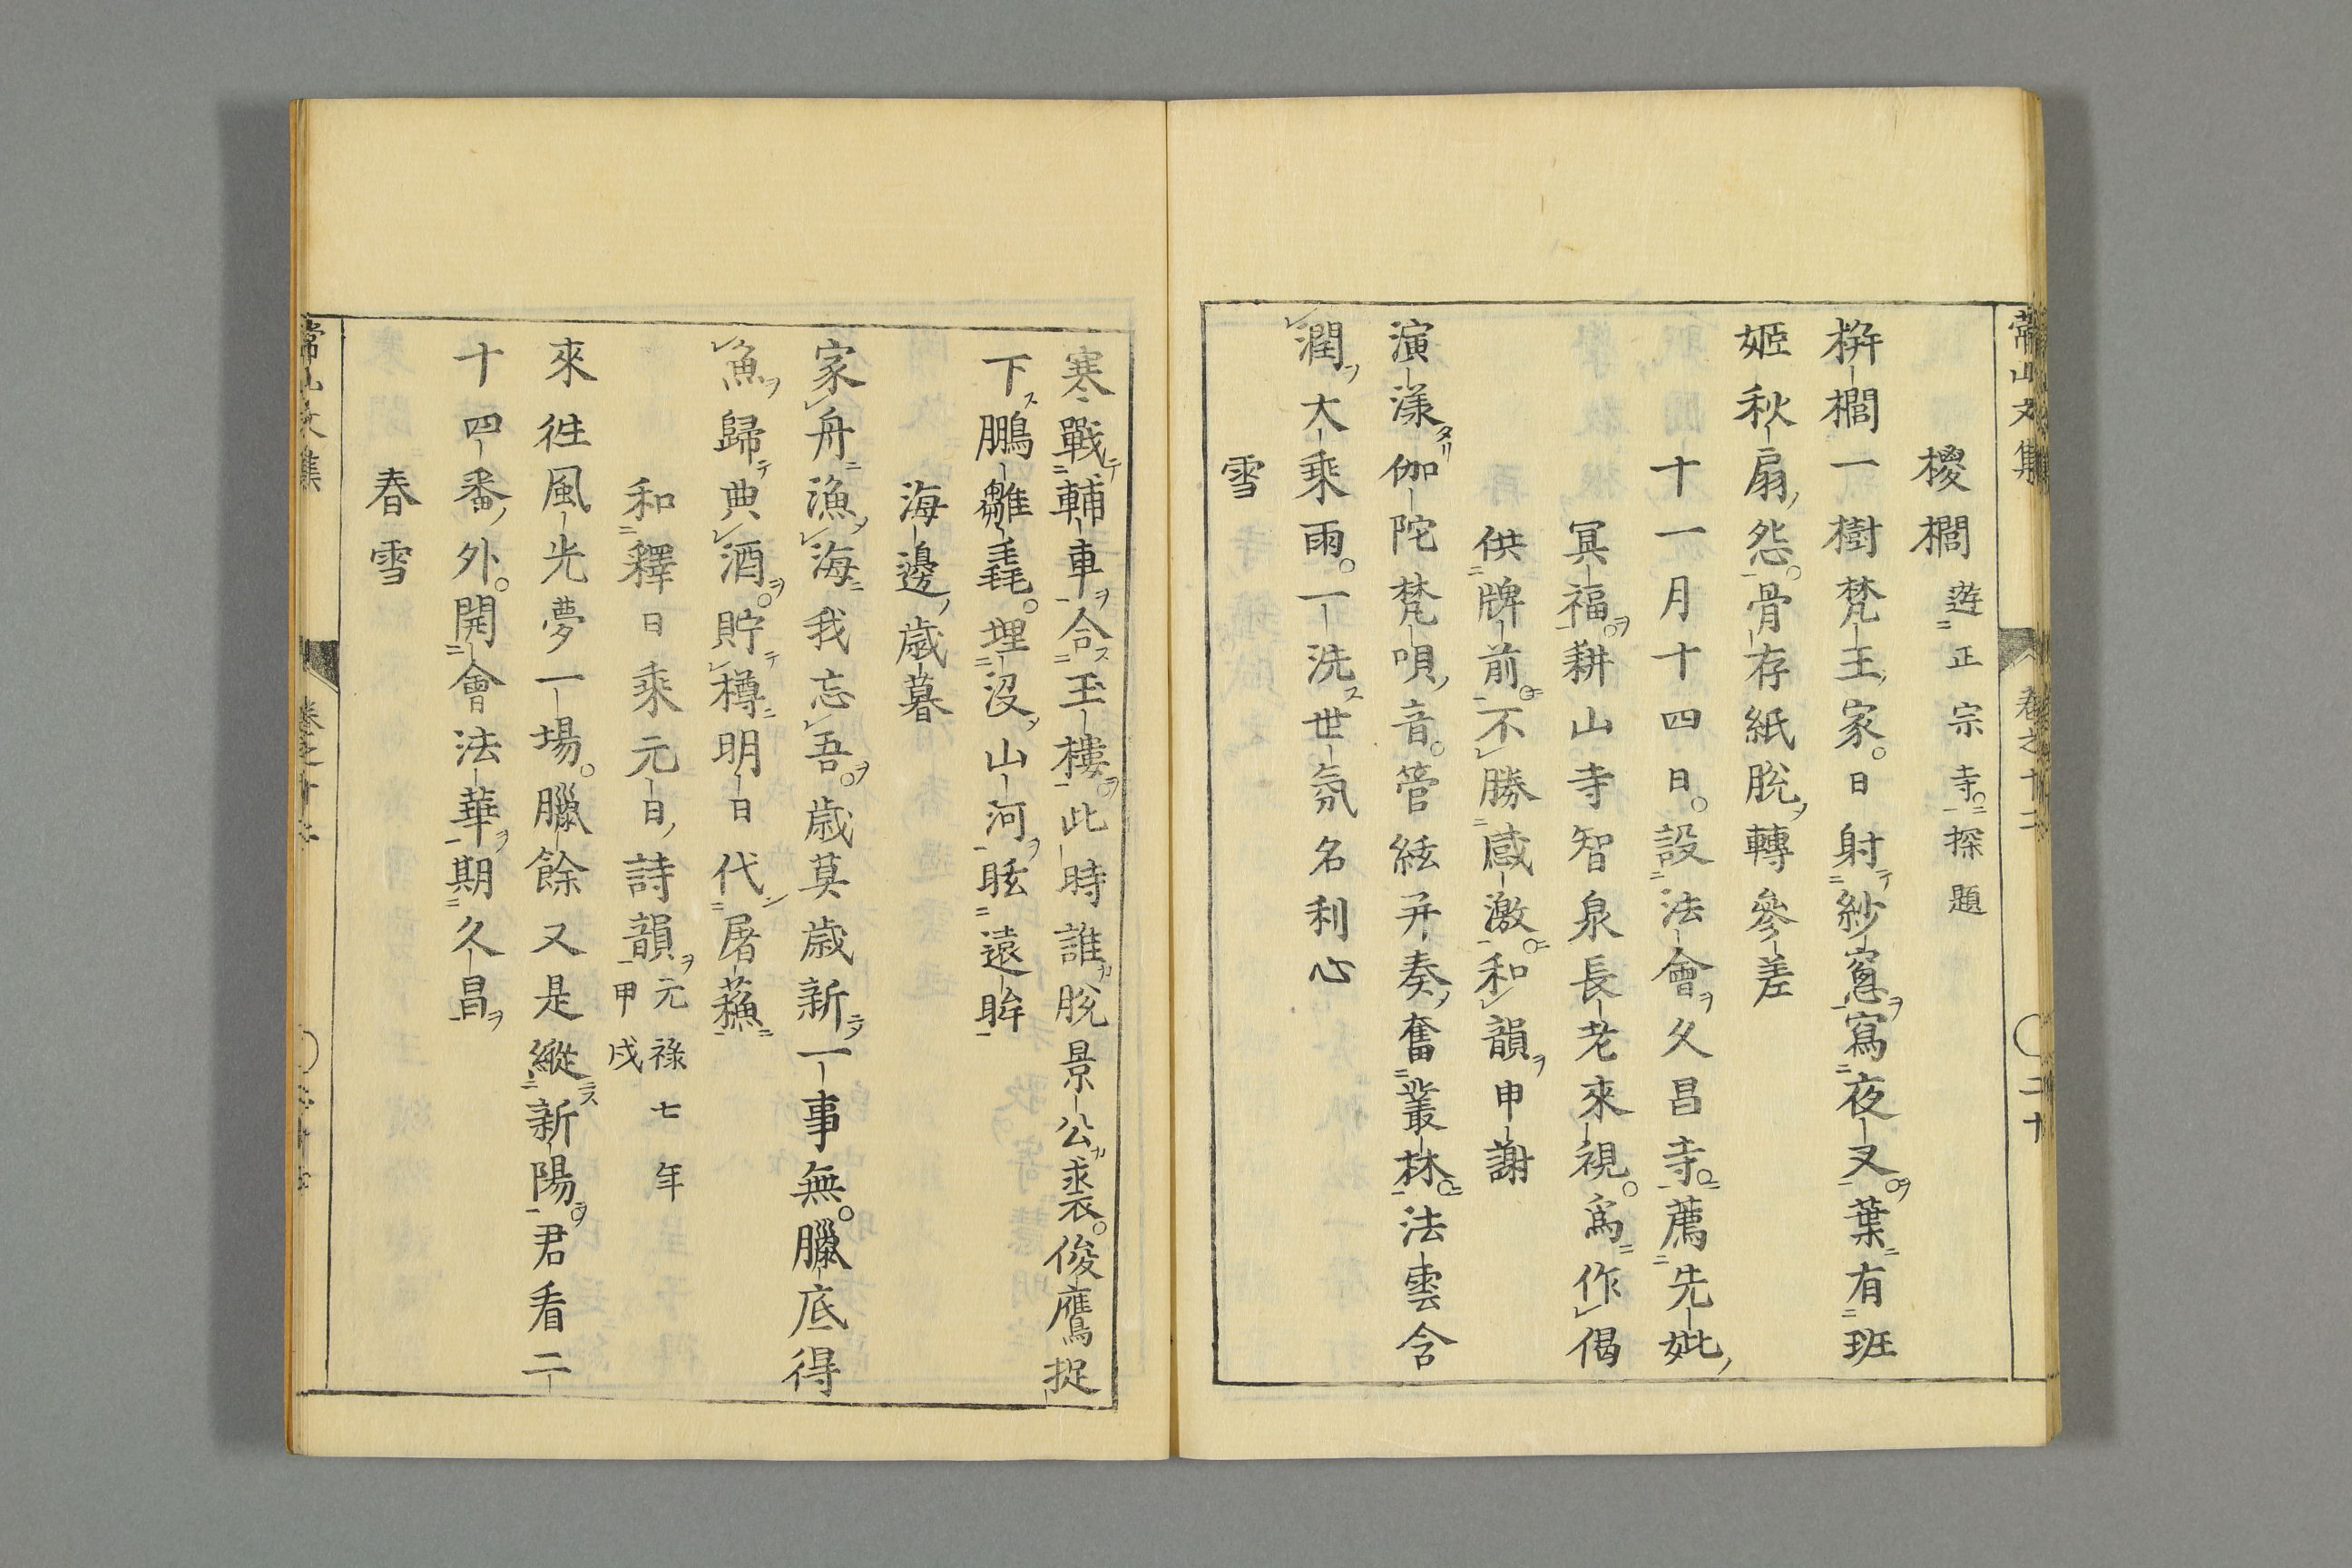 常山文集 卷之十二 〇二十
椶櫚 遊正宗寺探題
栟櫚一樹梵王家日射紗窻寫夜叉葉有班
姬秋扇怨骨存紙脫轉參差
十一月十四日設法會久昌寺薦先妣
冥福耕山寺智泉長老來視爲作偈
供牌前不勝感激和韻申謝
演漾伽陀梵唄音管絃幷奏奮叢林法雲含
潤大乘雨一洗世氛名利心
雪
寒戰輔車合玉樓此時誰脫景公裘俊鷹捉
下鵬雛毳埋沒山河眩遠眸
海邊歲暮
家舟漁海我忘吾歲莫歲新一事無臘底得
魚歸典酒貯樽明日代屠蘇
和釋日乘元日詩韻 元祿七年甲戌
來往風光夢一場臘餘又是縱新陽君看二
十四番外開會法華期久昌
春雪
常山文集